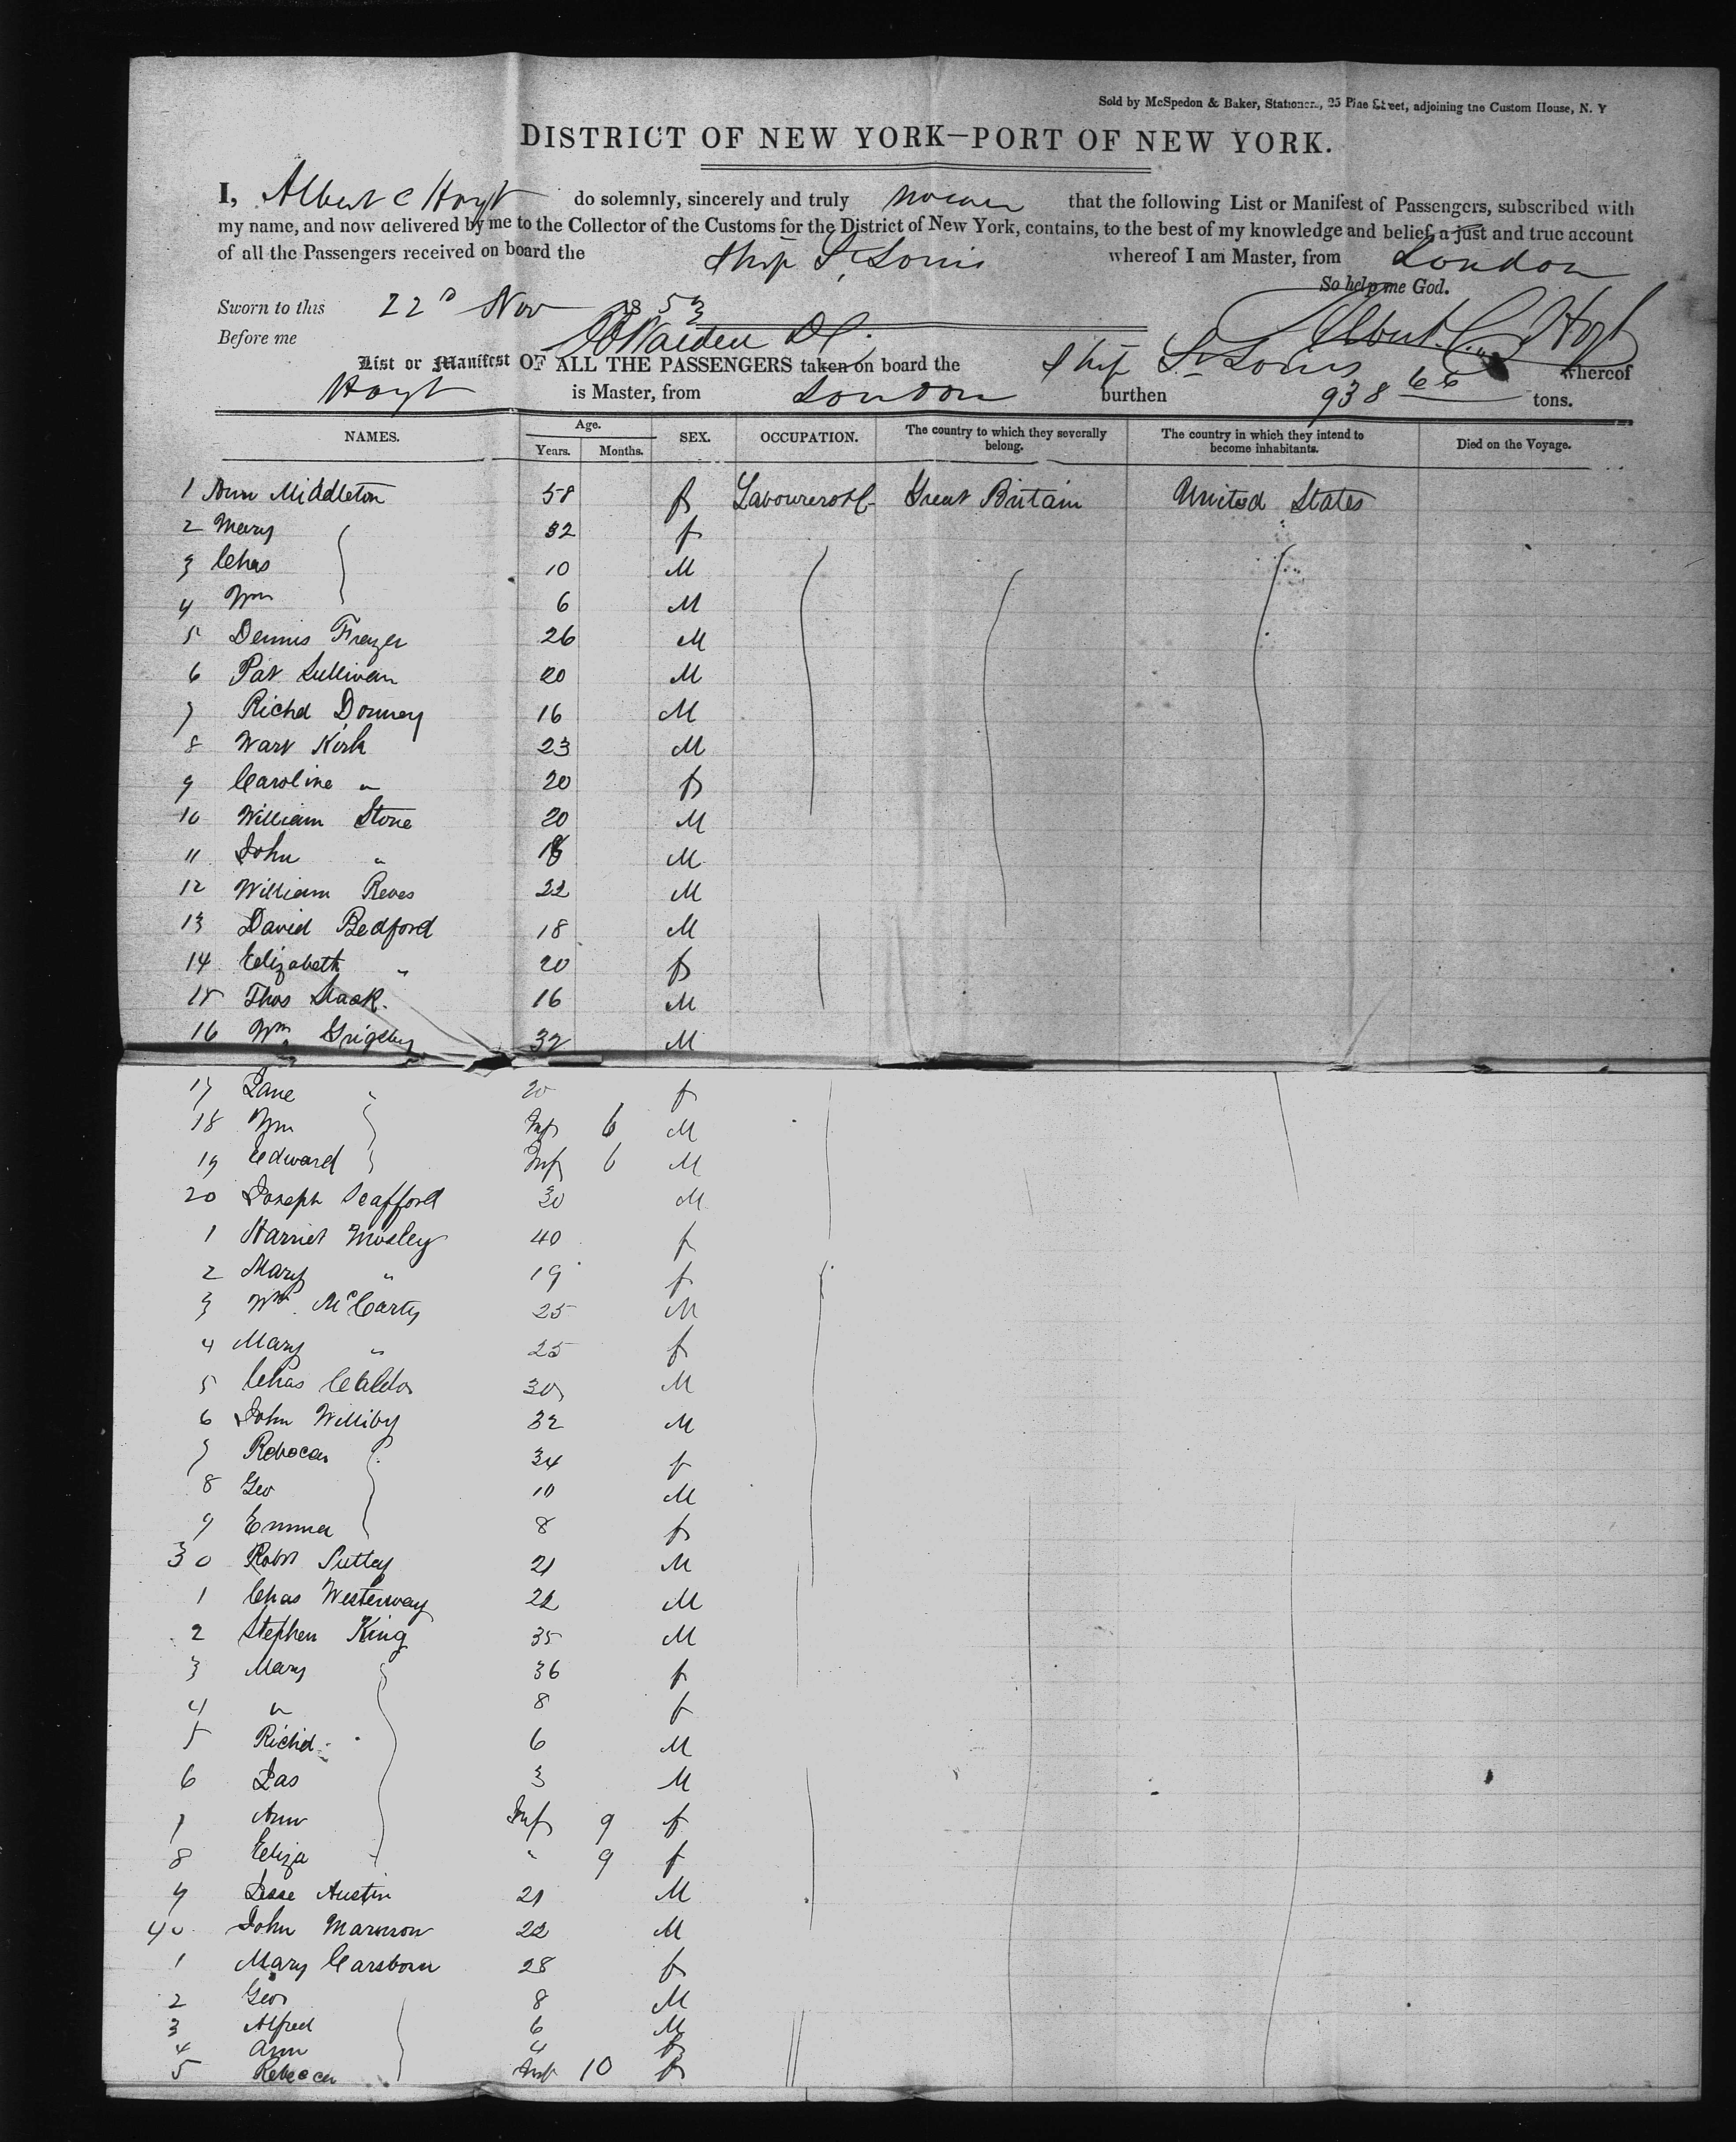 Sold by McSpedon & Baker, Stationers, 25 Pine Street, adjoining the Custom House, N. Y
DISTRICT OF NEW YORK—PORT OF NEW YORK.
I, Albert C Hoyt do solemnly, sincerely and truly swear that the following List or Manifest of Passengers, subscribed with
my name, and now delivered by me to the Collector of the Customs for the District of New York, contains, to the best of my knowledge and belief, a just and true account
of all the Passengers received on board the Ship St Louis whereof I am Master, from London
So help me God.
Sworn to this 22d Nov 1853
Albert C Hoyt
Before me
List or Manifest OF ALL THE PASSENGERS taken on board the Ship St Louis whereof
Hoyt is Master, from London burthen 938 66 tons.
NAMES. Age. Years. Months. SEX. OCCUPATION. The country to which they severally belong. The country in which they intend to become inhabitants. Died on the Voyage.
1 Ann Middleton 58 f Great Britain United States
2 Mary 32 f
3 Chas 10 M
4 Wm 6 M
5 Dennis Frazer 26 M
6 Pat Sullivan 20 M
7 Richd 16 M
8 Kirk 23 M
9 Caroline " 20 f
10 William Stone 20 M
11 John " M
12 William Reves 22 M
13 David Bedford 18 M
14 Elizabeth " 20 f
15 Thos Slack 16 M
16 Wm Grigsby 32 M
17 Jane " 20 f
18 Wm Inf 6 M
19 Edward Inf 6 M
20 Joseph Seafford 30 M
1 Harriet Mosley 40 f
2 Mary " 19 f
3 Wm McCarty 25 M
4 Mary " 25 f
5 Chas 30 M
6 John Williby 32 M
7 Rebecca 34 f
8 Geo 10 M
9 Emma 8 f
30 Robt 21 M
1 Chas Westerway 22 M
2 Stephen King 35 M
3 Mary 36 f
4 " 8 f
5 Richd 6 M
6 Jas 3 M
7 Ann Inf 9 f
8 Eliza " 9 f
9 Jesse Austin 21 M
40 John 22 M
1 Mary Carsborn 28 f
2 Geo 8 M
3 Alfred 6 M
4 Ann 4 f
5 Rebecca Inf 10 f